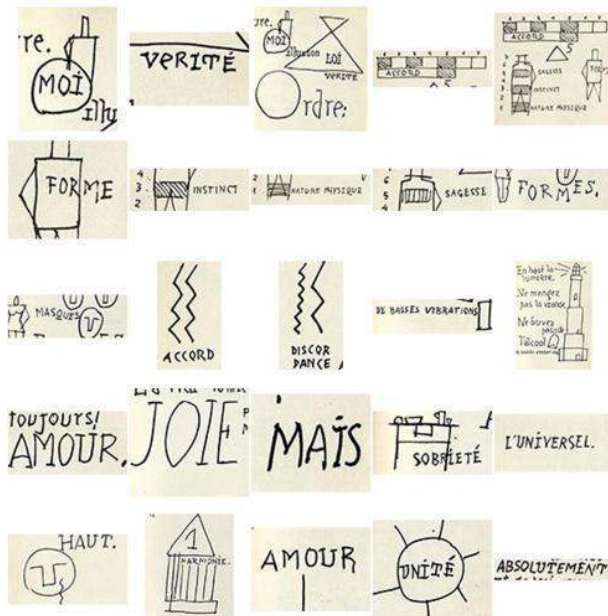 re.
MOÏ
illu
VERITÉ
MOÏ
illusion
LOÏ
VERITÉ
Ordre:
1 2 3 4 5 6 7
ACCORD
5
ACCORD
5
7
6
5
4
3
2
1
SAGESSE
INSTINCT
NATURE PHYSIQUE
FORME
FORME
4
3
2
INSTINCT
2
1
NATURE PHYSIQUE
6
5
4
SAGESSE
FORMES.
MASQUES
ACCORD
DISCOR
DANCE
DE BASSES VIBRATIONS
En haut la
lumière.
Ne mangez
pas la viande
Ne buvez
pas de
l'alcool
TOUJOURS!
AMOUR.
JOIE
MAÏS
SOBRIETÉ
L'UNIVERSEL.
HAUT.
1
HARMONIE.
AMOUR
UNITÉ
ABSOLUTEMENT